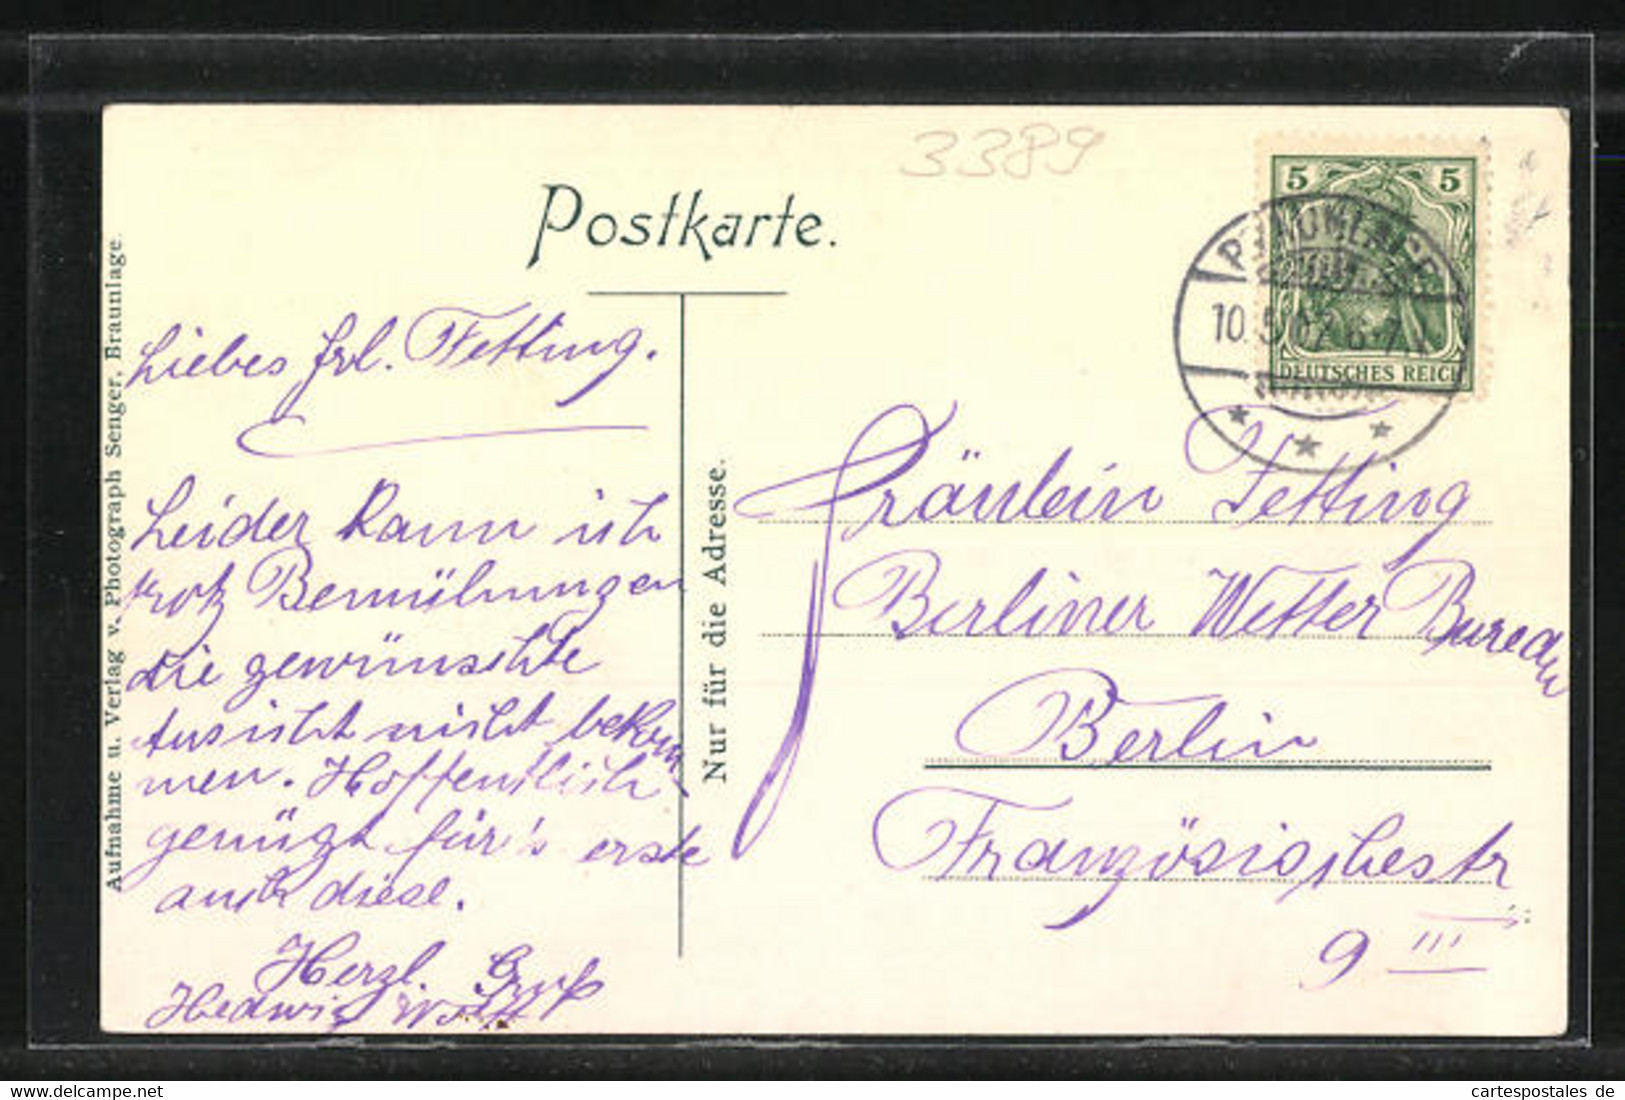 3389
Postkarte.
5 5
DEUTSCHES REICH
BRAUNLAGE
10.5.07. 6-7N
Aufnahme u. Verlag v. Photograph Senger, Braunlage.
Nur für die Adresse.
Liebes Frl. Fetting.
Leider kann ich
trotz Bemühungen
die gewünschte
Ansicht nicht bekom
men. Hoffentlich
genügt für's erste
auch diese.
Herzl. Gruß
Hedwig Wolff
Fräulein Fetting
Berliner Wetter Bureau
Berlin
Französischestr
9 III
Powered by delcampe.net
cartespostales de